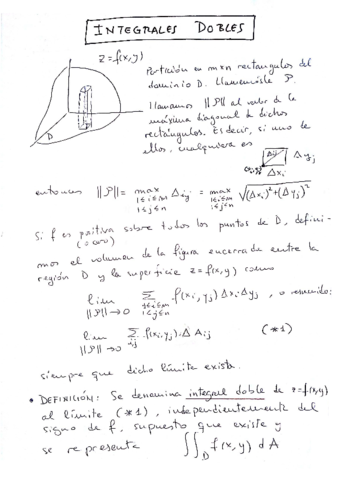 INTEGRALES DOBLES
z=f(x,y)
Partición en mxn rectángulos del
dominio D. Llamémosle P.
Llamamos ||P|| al valor de la
máxima diagonal de dichos
rectángulos. Es decir, si uno de
ellos, cualquiera es
D
Δij
Δyj
Δxi
entonces ||P|| = max Δij = max √((Δxi)²+(Δyj)²)
1≤i≤m 1≤i≤m
1≤j≤n 1≤j≤n
Si f es positiva sobre todos los puntos de D, defini-
(ó cero)
mos el volumen de la figura encerrada entre la
región D y la superficie z=f(x,y) como
lim Σ f(xi,yj) Δxi Δyj , o resumido:
||P||→0 1≤i≤m
1≤j≤n
lim Σ f(xi,yj) · Δ Aij (*1)
||P||→0 i,j
siempre que dicho límite exista.
• DEFINICIÓN: Se denomina integral doble de z=f(x,y)
al límite (*1), independientemente del
signo de f, supuesto que existe y
se representa ∫∫D f(x,y) dA